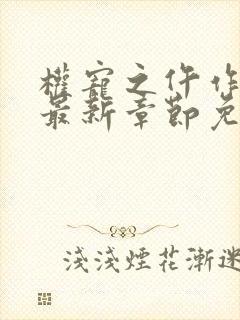 權寵之仵作
最新章節免
淺淺煙花漸迷